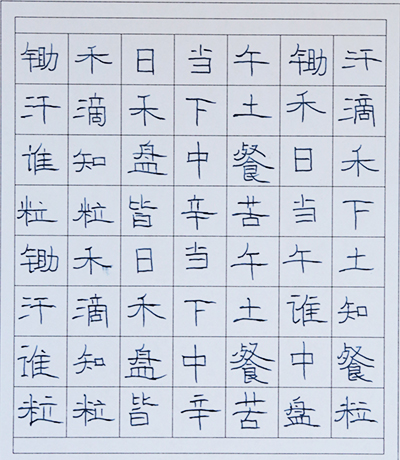 锄禾日当午锄汗
汗滴禾下土禾滴
谁知盘中餐日禾
粒粒皆辛苦当下
锄禾日当午午土
汗滴禾下土谁知
谁知盘中餐中餐
粒粒皆辛苦盘粒